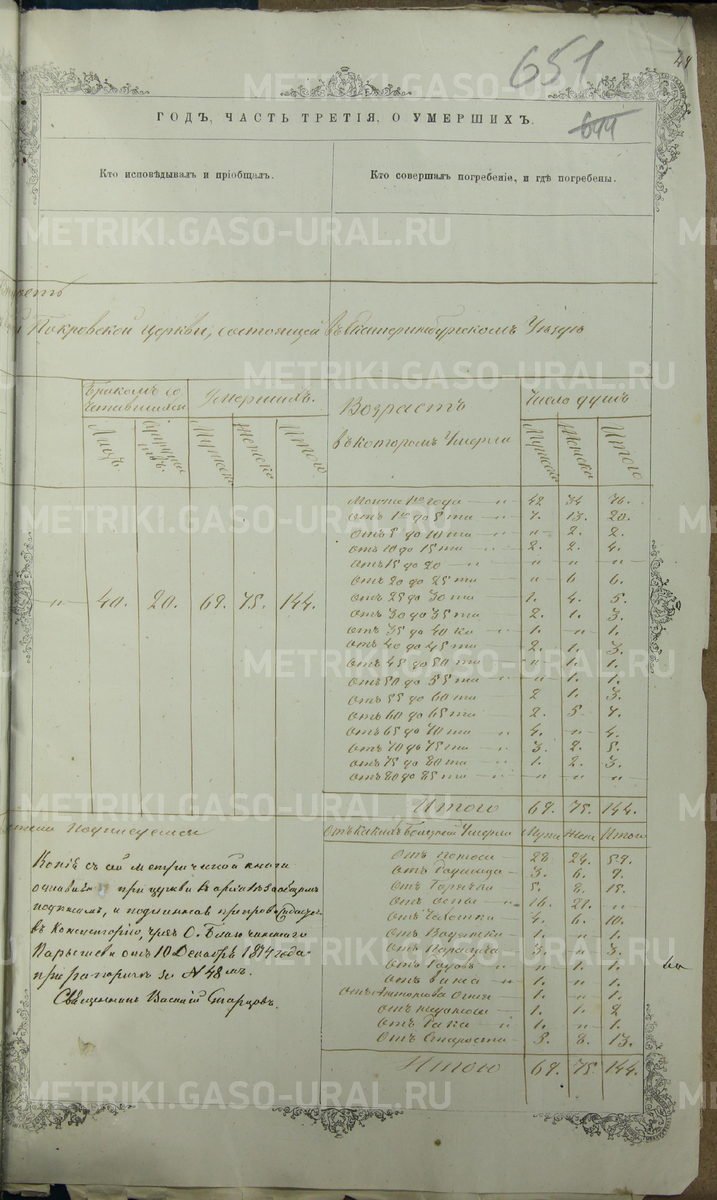 651
ГОДЪ, ЧАСТЬ ТРЕТІЯ, О УМЕРШИХЪ.
644
Кто исповѣдывалъ и пріобщалъ.
Кто совершалъ погребеніе, и гдѣ погребены.
Покровской церкви, состоящей въ Екатеринбургскомъ Уѣздѣ
Бракомъ со четавшихся
Умершихъ.
Возрастъ въ которомъ Умерли
Число душъ
Лицъ. Мужеска Женска Итого
Мужеска Женска Итого
" 40. 20. 69. 75. 144.
Менѣе 1го года " 42 34 76.
Отъ 1го до 5 ти 7. 13. 20.
Отъ 5 до 10 ти " 2. 2.
Отъ 10 до 15 ти 2. 2. 4.
Отъ 15 до 20 " " "
Отъ 20 до 25 ти " 6 6.
Отъ 25 до 30 ти 1. 4. 5.
Отъ 30 до 35 ти 2. 1. 3.
Отъ 35 до 40 1. " 1.
Отъ 40 до 45 ти 2. 1. 3.
Отъ 45 до 50 ти " 1. 1.
Отъ 50 до 55 ти " 1. 1.
Отъ 55 до 60 ти 2 1. 3.
Отъ 60 до 65 ти 2. 5 7.
Отъ 65 до 70 ти 4. " 4.
Отъ 70 до 75 ти 3. 2. 5.
Отъ 75 до 80 ти 1. 2. 3.
Отъ 80 до 85 ти " " "
Итого 69. 75. 144.
Отъ какихъ болезней Умерли Муж Жен Итого
Отъ поноса 24.
Отъ 3. 6. 9.
Отъ Горячки 5. 8. 13.
Отъ оспы 16. 21. "
Отъ Чахотки 4. 6. 10.
Отъ Водянки 1. " 1.
Отъ Паралича 3. " 3.
Отъ Родовъ " 1. 1.
Отъ 1. " 1.
Отъ Антонова Огня 1. " 1.
Отъ 1. 1. 2
Отъ Рака 1. " 1.
Отъ Старости 5. 8. 13.
Итого 69. 75 144.
Копія съ сей метрической книги
при церкви въ архивѣ за общимъ
подписомъ, и подлинная препровождена
въ Консисторію, чрезъ О. Благочиннаго
отъ 10 Декабря 1874 года
при рапортѣ за № 48мъ.
Священникъ Василій Старцовъ.
METRIKI.GASO-URAL.RU